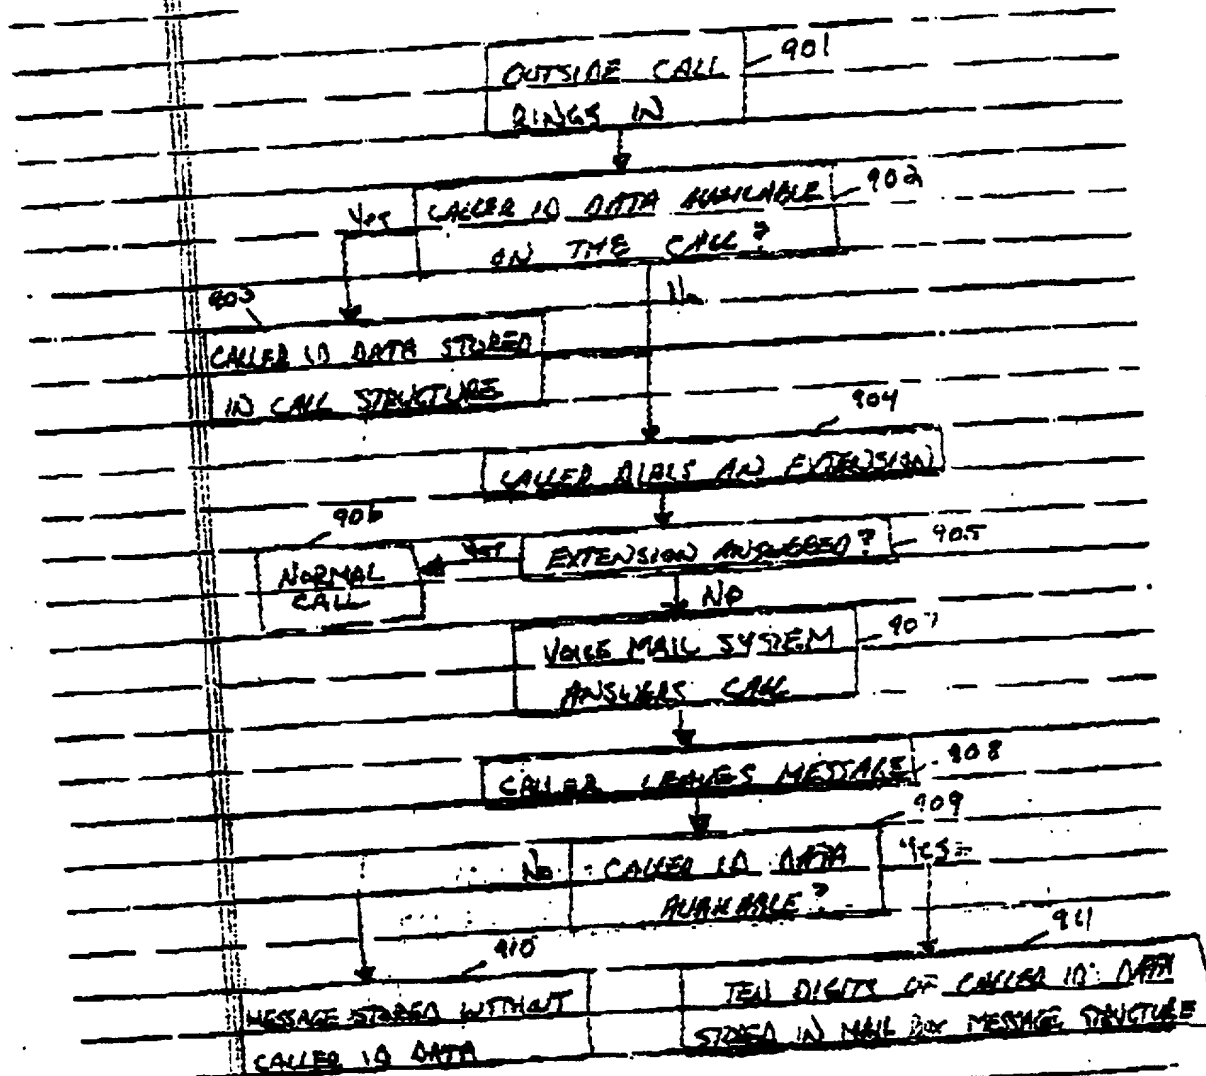 901
OUTSIDE CALL
RINGS IN
902
CALLER ID DATA AVAILABLE
ON THE CALL?
Yes
No
903
CALLER ID DATA STORED
IN CALL STRUCTURE
904
CALLER DIALS AN EXTENSION
905
EXTENSION ANSWERED?
Yes
906
NORMAL
CALL
No
907
VOICE MAIL SYSTEM
ANSWERS CALL
908
CALLER LEAVES MESSAGE
909
No
CALLER ID DATA
AVAILABLE?
Yes
910
MESSAGE STORED WITHOUT
CALLER ID DATA
911
TEN DIGITS OF CALLER ID DATA
STORED IN MAIL BOX MESSAGE STRUCTURE